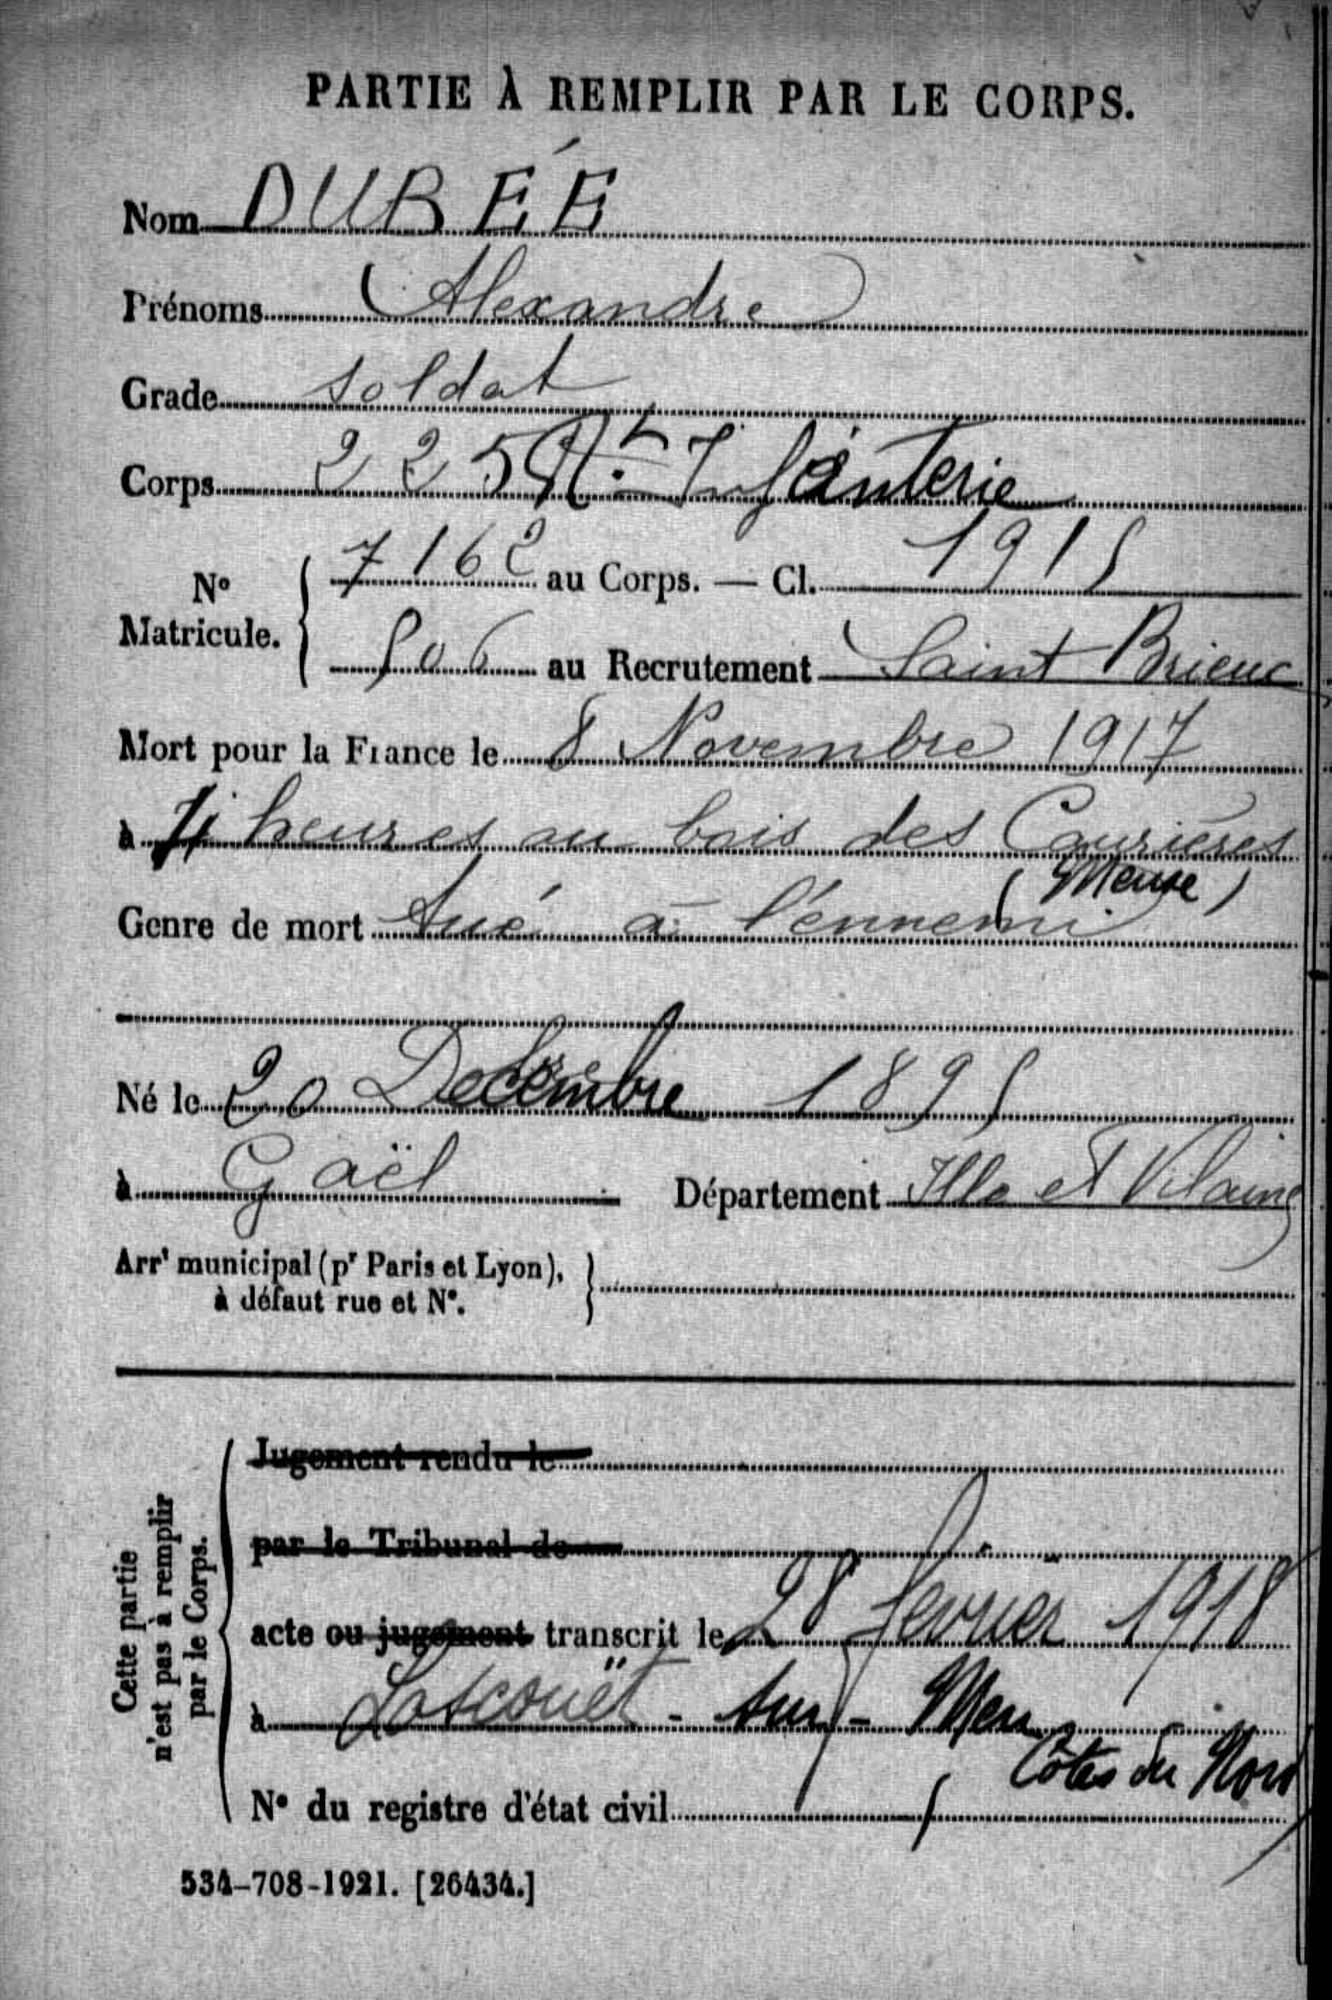 PARTIE À REMPLIR PAR LE CORPS.
Nom DUBÉE
Prénoms Alexandre
Grade soldat
Corps 225 Rt Infanterie
No Matricule. 7162 au Corps. — Cl. 1915
506 au Recrutement Saint Brieuc
Mort pour la France le 8 Novembre 1917
à heures au bois des Caurières
(Meuse)
Genre de mort tué à l'ennemi
Né le 20 Décembre 1895
à Gaël Département Ille et Vilaine
Arrt municipal (pr Paris et Lyon),
à défaut rue et No.
Cette partie
n'est pas à remplir
par le Corps.
Jugement rendu le
par le Tribunal de
acte ou jugement transcrit le 28 février 1918
à Loscouët - sur - Meu
Côtes du Nord
No du registre d'état civil
534-708-1921. [26434.]